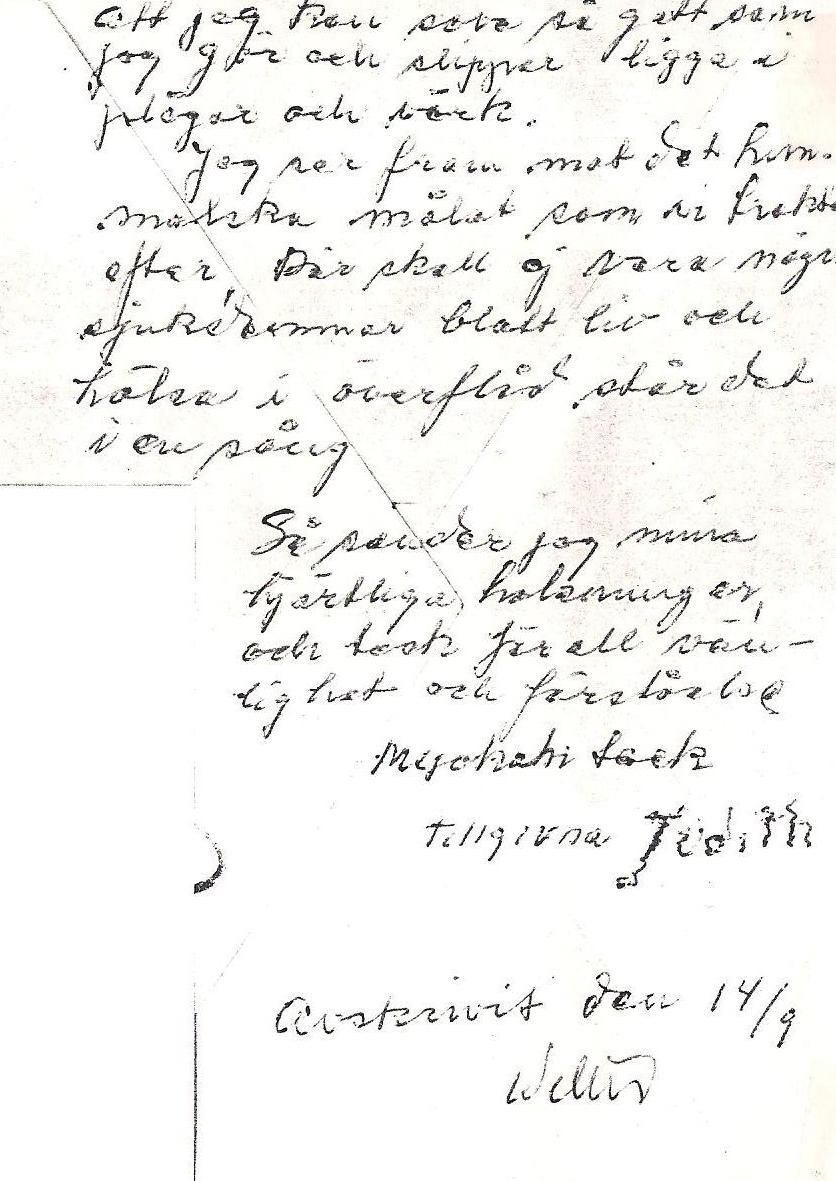 att jag kan sova så gott som
jag gör och slipper ligga i
plågor och värk.
Jag ser fram mot det him-
melska målet som vi trakta
efter, Där skall ej vara någr
sjukdommar blott liv och
hälsa i överflöd står det
i en sång
Så sänder jag mina
hjärtliga hälsningar,
och tack för all vän-
lighet och förståelse
Mycket tack
tillgivna
Avskrivit den 14/9